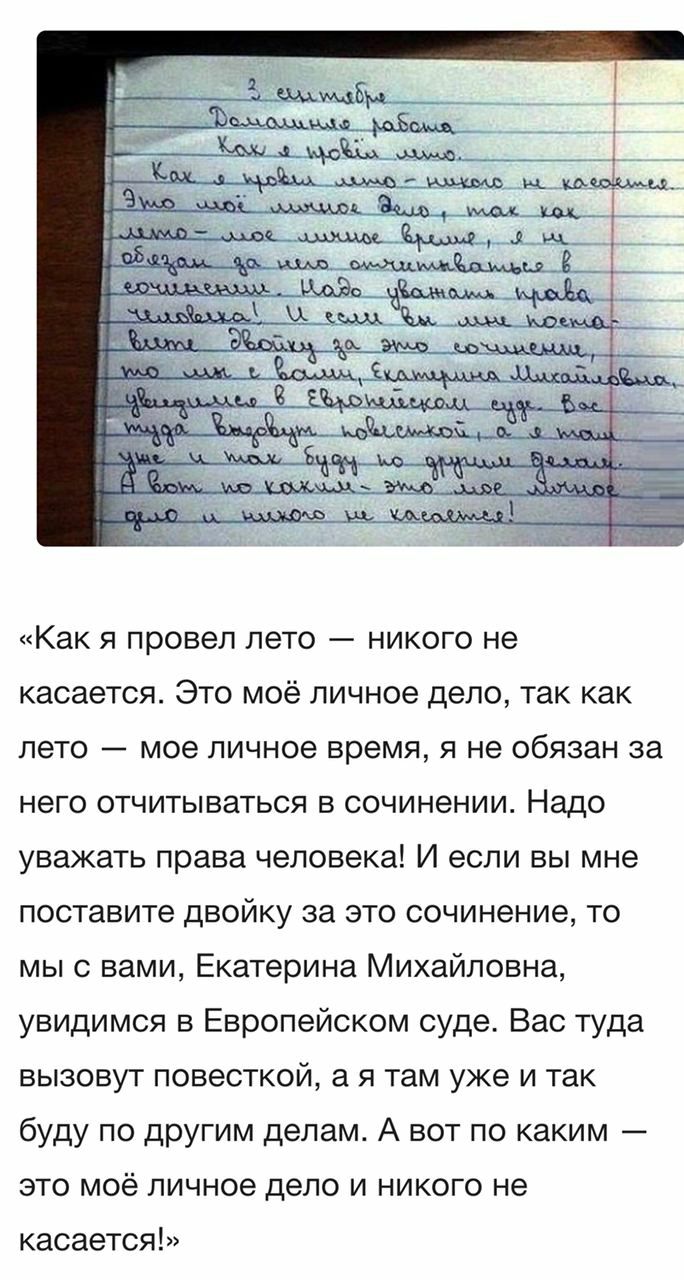 3 сентября
Домашняя работа
Как я провёл лето.
Как я провёл лето – никого не касается.
Это моё личное дело, так как
лето – мое личное время, я не
обязан за него отчитываться в
сочинении. Надо уважать права
человека! И если вы мне поста-
вите двойку за это сочинение,
то мы с вами, Екатерина Михайловна,
увидимся в Европейском суде. Вас
туда вызовут повесткой, а я там
уже и так буду по другим делам.
А вот по каким – это мое личное
дело и никого не касается!
«Как я провел лето — никого не
касается. Это моё личное дело, так как
лето — мое личное время, я не обязан за
него отчитываться в сочинении. Надо
уважать права человека! И если вы мне
поставите двойку за это сочинение, то
мы с вами, Екатерина Михайловна,
увидимся в Европейском суде. Вас туда
вызовут повесткой, а я там уже и так
буду по другим делам. А вот по каким —
это моё личное дело и никого не
касается!»